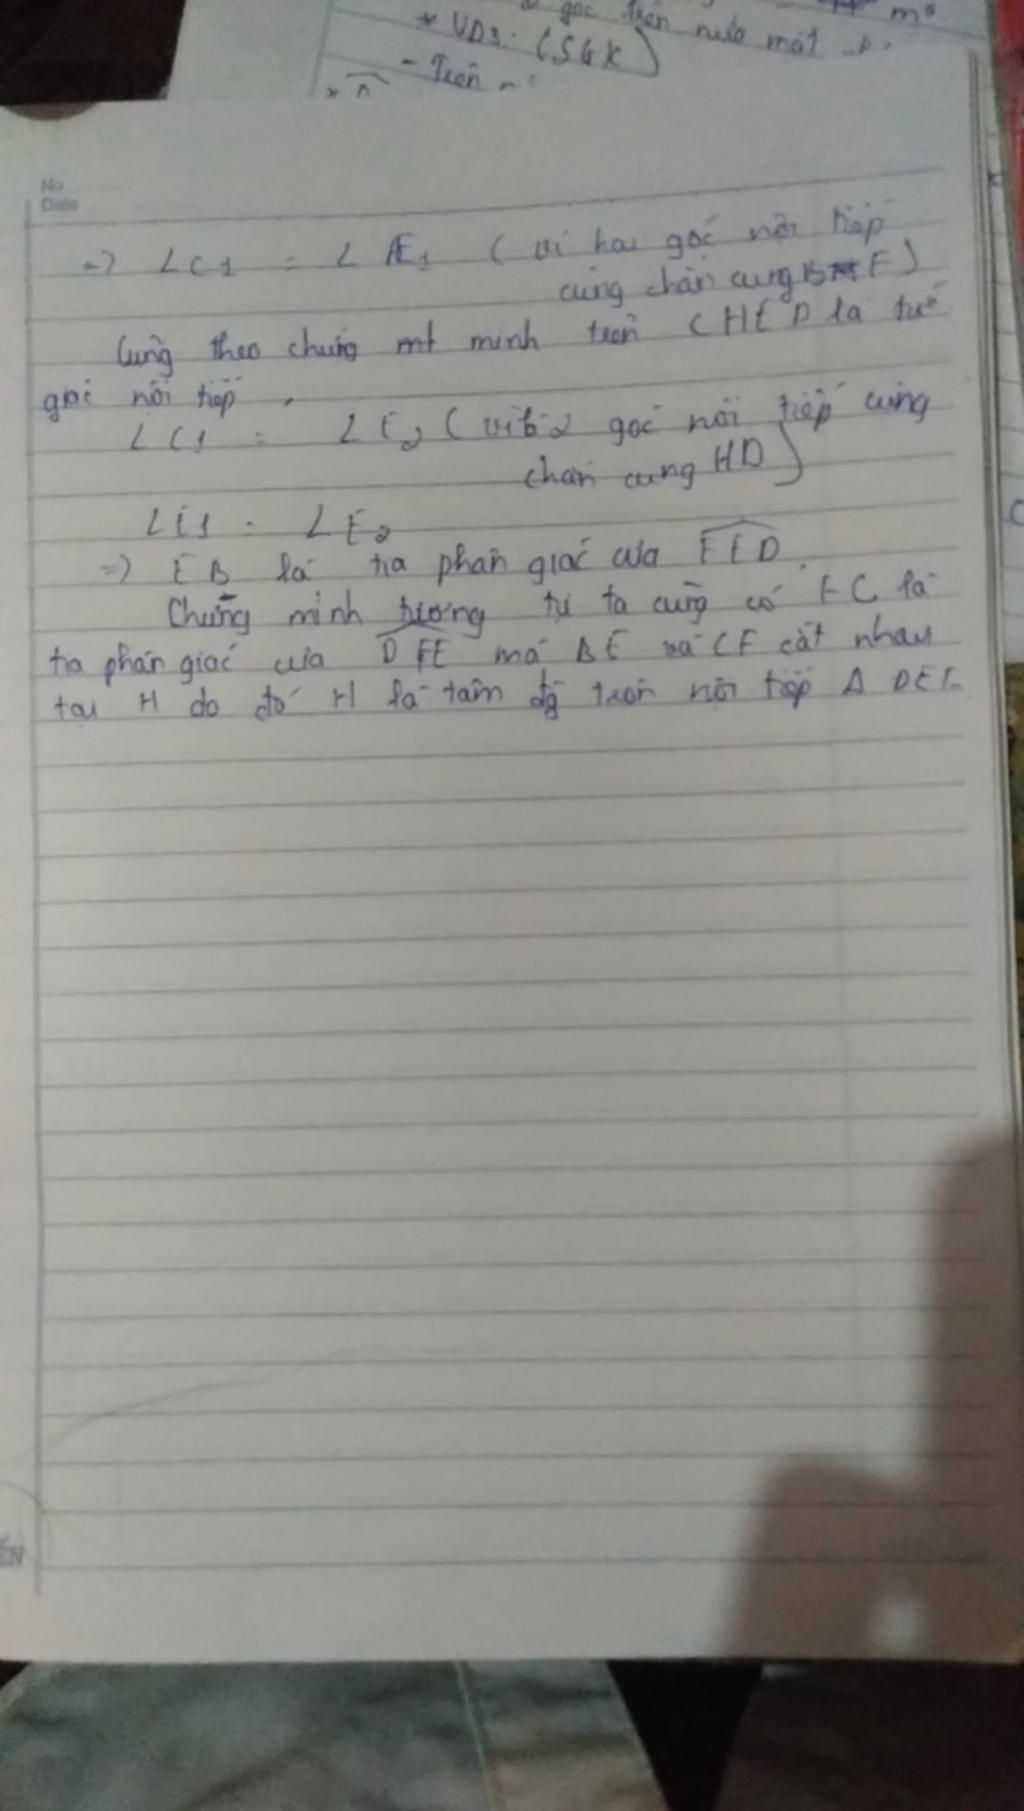 góc trên nửa mặt
* VD3: (SGK)
- Trên
No
Date
=> ∠C1 = ∠E1 (vì hai góc nội tiếp
cùng chắn cung BF)
Cũng theo chứng minh trên CHED là tứ
giác nội tiếp
∠C1 = ∠E2 (vì 2 góc nội tiếp cùng
chắn cung HD)
∠E1 = ∠E2
=> EB là tia phân giác của FED
Chứng minh tương tự ta cũng có FC là
tia phân giác của DFE mà BE và CF cắt nhau
tại H do đó H là tâm đg tròn nội tiếp Δ DEF